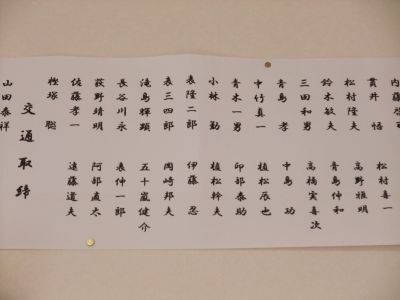 内藤
貫井　悟　松村喜一
松村隆夫　高野雅明
鈴木敏夫　青島伸和
三田和男　高橋実喜次
青島　孝　中島　功
中竹真一　植松辰也
青木一男　卯部泰助
小林　勤　植松幹夫
表隆二郎　伊藤　忍
表三四郎　岡崎邦夫
滝島輝顕　五十嵐健介
長谷川永　表仲一郎
荻野靖明　阿部直太
佐藤孝一　遠藤道夫
樫塚　聡
交通取締
山田泰祥